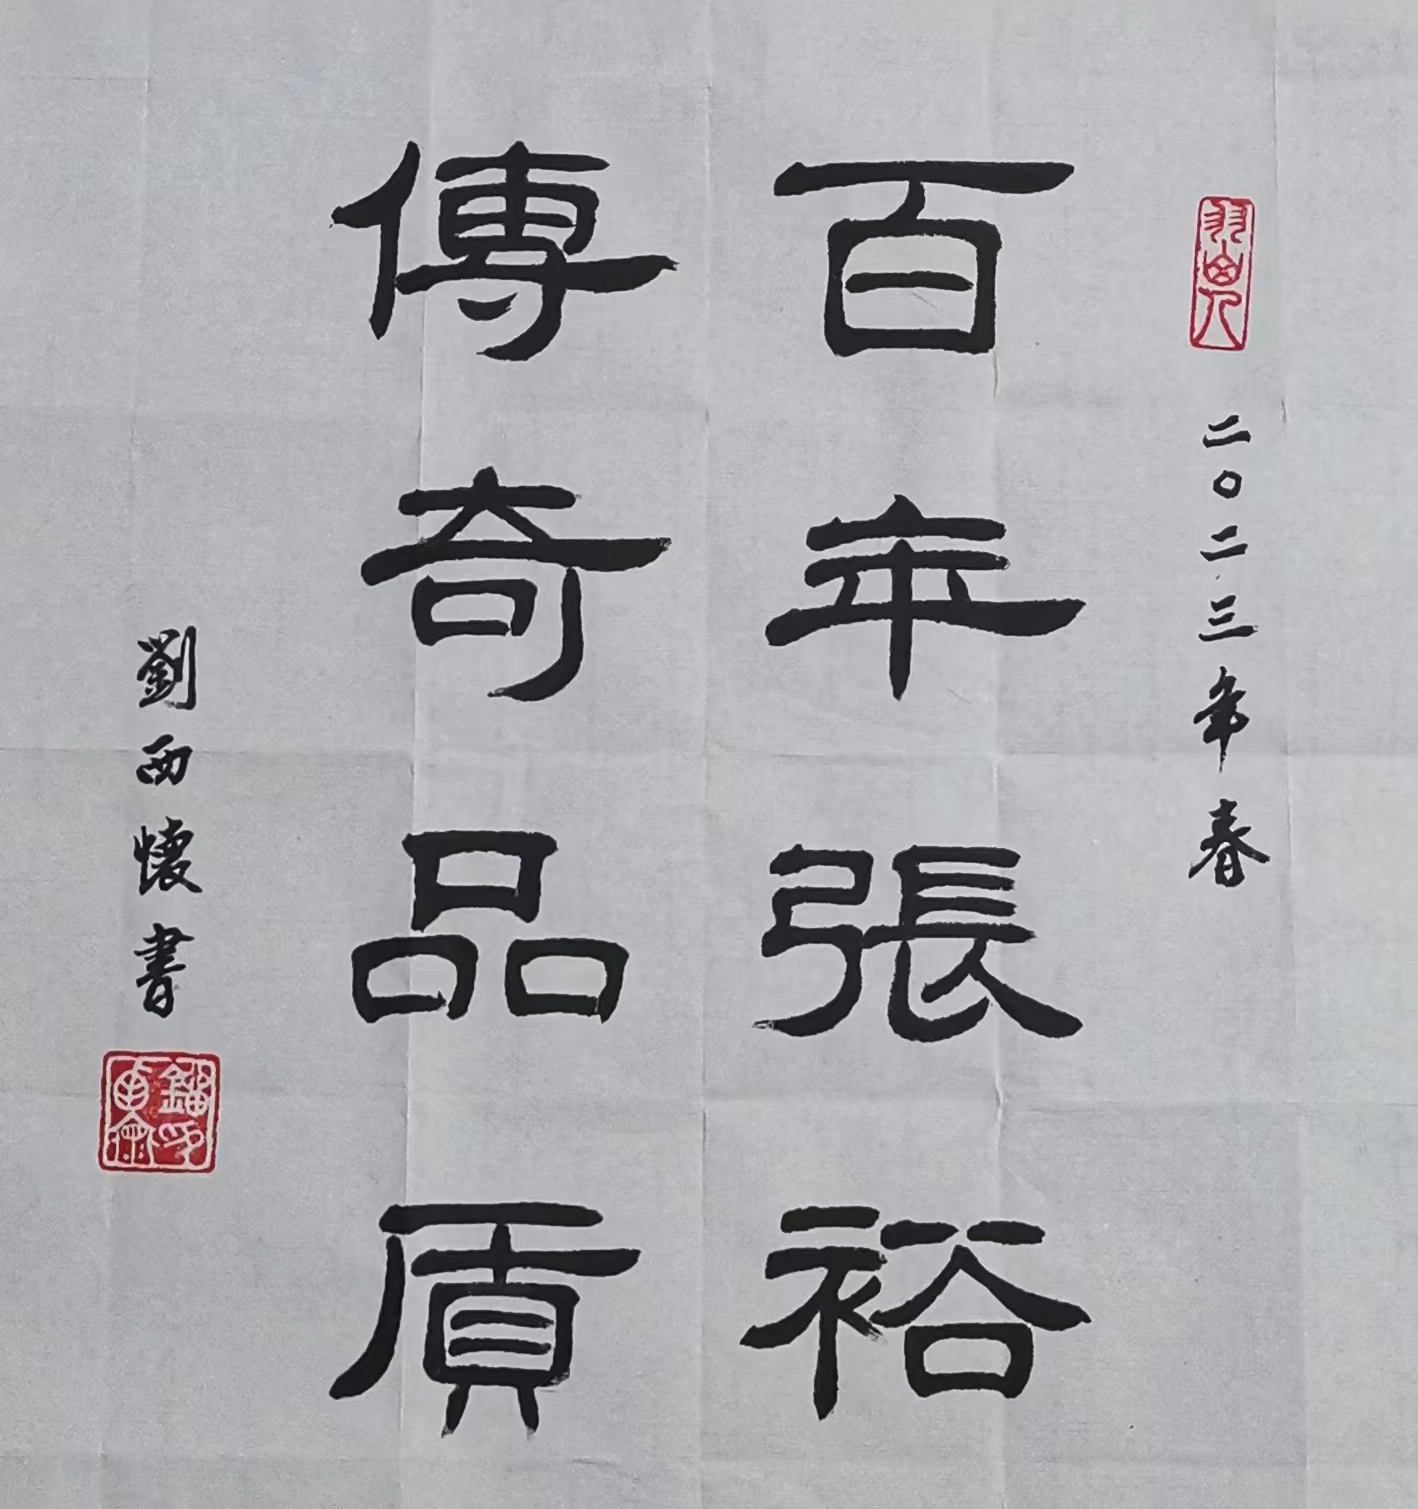 二〇二三年春
百年張裕
傳奇品质
劉西懷書